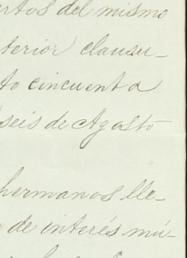 ertos del mismo
terior clausu-
to cincuenta
seis de Agosto
hermanos lle-
de interés mú-